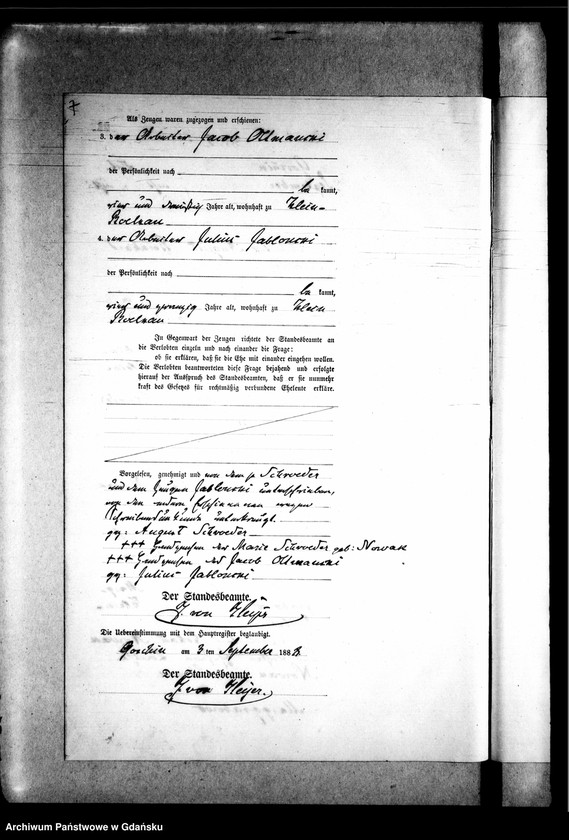 7
Als Zeugen waren zugezogen und erschienen:
3. der Arbeiter Jacob Ollmanski
der Persönlichkeit nach
be kannt,
vier und dreißig Jahre alt, wohnhaft zu Klein-
Roelzau
4. der Arbeiter Julius Jablonski
der Persönlichkeit nach
be kannt,
vier und zwanzig Jahre alt, wohnhaft zu Klein
Roelzau
In Gegenwart der Zeugen richtete der Standesbeamte an
die Verlobten einzeln und nach einander die Frage:
ob sie erklären, daß sie die Ehe mit einander eingehen wollen.
Die Verlobten beantworteten diese Frage bejahend und erfolgte
hierauf der Ausspruch des Standesbeamten, daß er sie nunmehr
kraft des Gesetzes für rechtmäßig verbundene Eheleute erkläre.
Vorgelesen, genehmigt und von dem p. Schroeder
und dem Zeugen Jablonski unterschrieben,
von den andern Erschienenen wegen
Schreibensunkunde unterkreuzt.
gez: August Schroeder
+++ Handzeichen der Marie Schroeder geb: Nowak
+++ Handzeichen des Jacob Ollmanski
gez: Julius Jablonski
Der Standesbeamte.
J. von
Die Uebereinstimmung mit dem Hauptregister beglaubigt.
am 3 ten September 188
Der Standesbeamte.
J. von
Archiwum Państwowe w Gdańsku